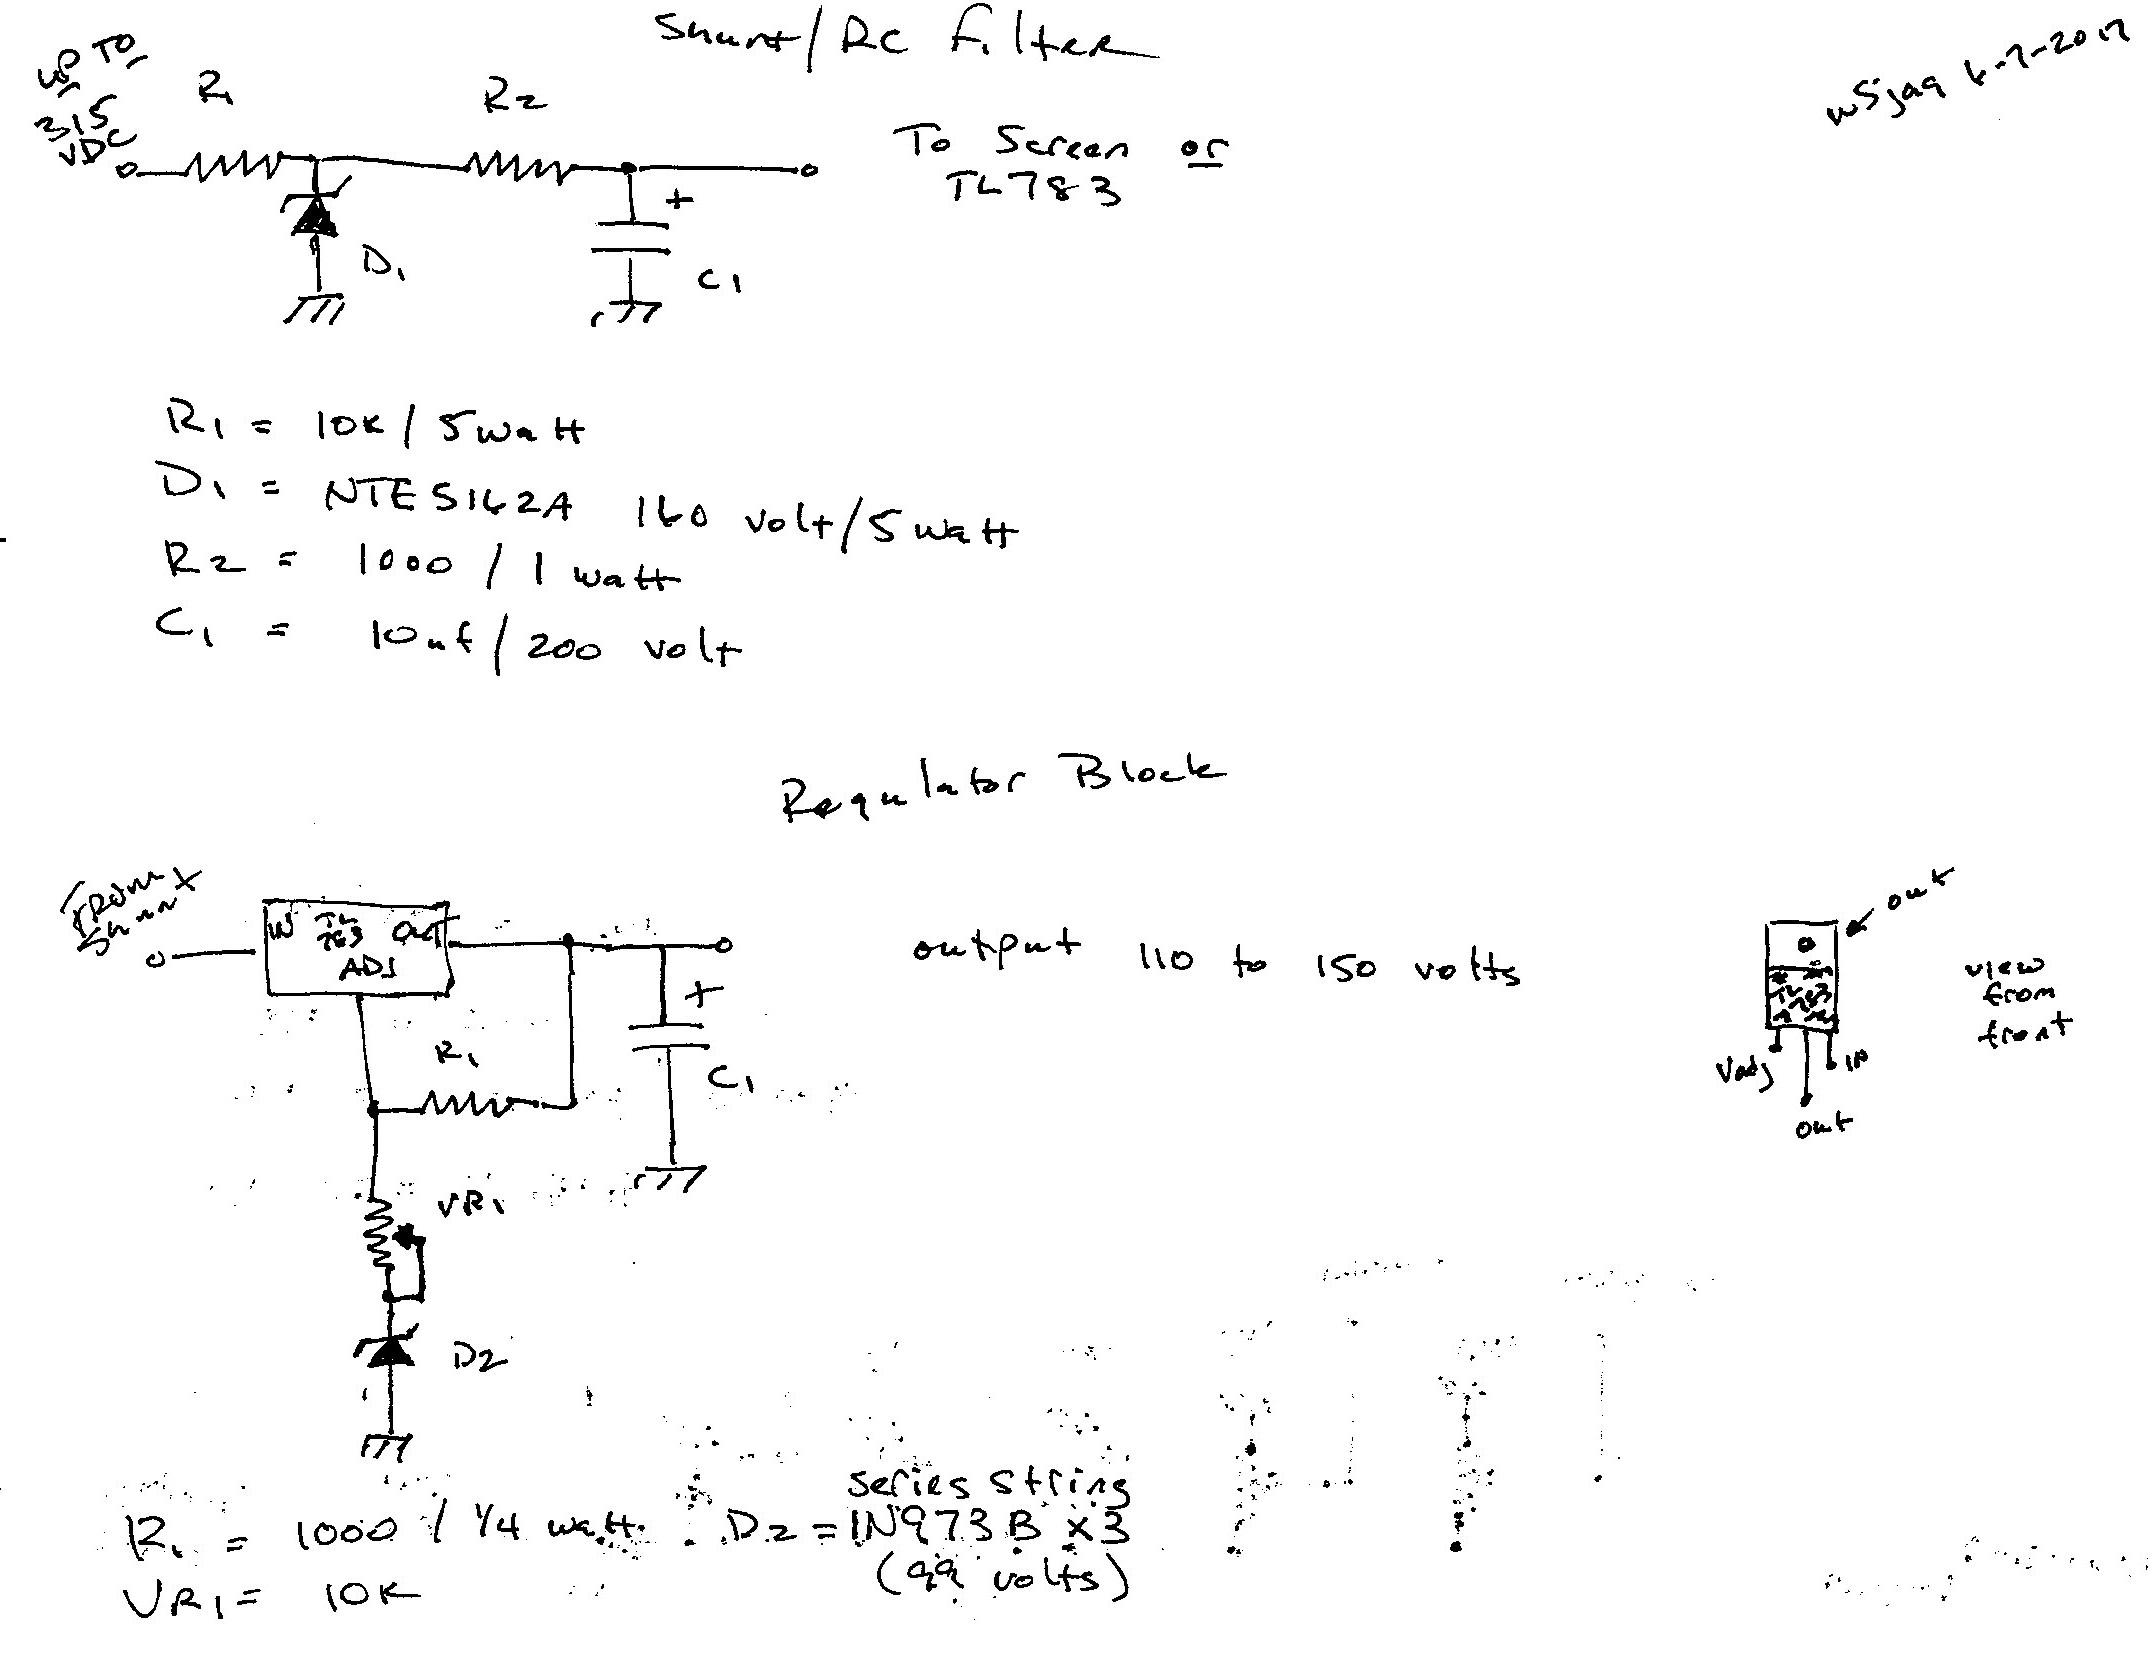 Shunt/RC Filter
w5jag 6-7-2017
UP TO
315
VDC
R1
R2
To Screen or
TL783
+
D1
C1
R1 = 10K / 5 watt
D1 = NTE5162A 160 volt/5 watt
R2 = 1000 / 1 watt
C1 = 10uf / 200 volt
Regulator Block
FROM
Shunt
IN TL OUT
783
ADJ
output 110 to 150 volts
out
view
from
front
TL783
Vadj
IN
out
+
R1
C1
VR1
D2
series string
R1 = 1000 / 1/4 watt D2 = 1N973B x3
(99 volts)
VR1 = 10K